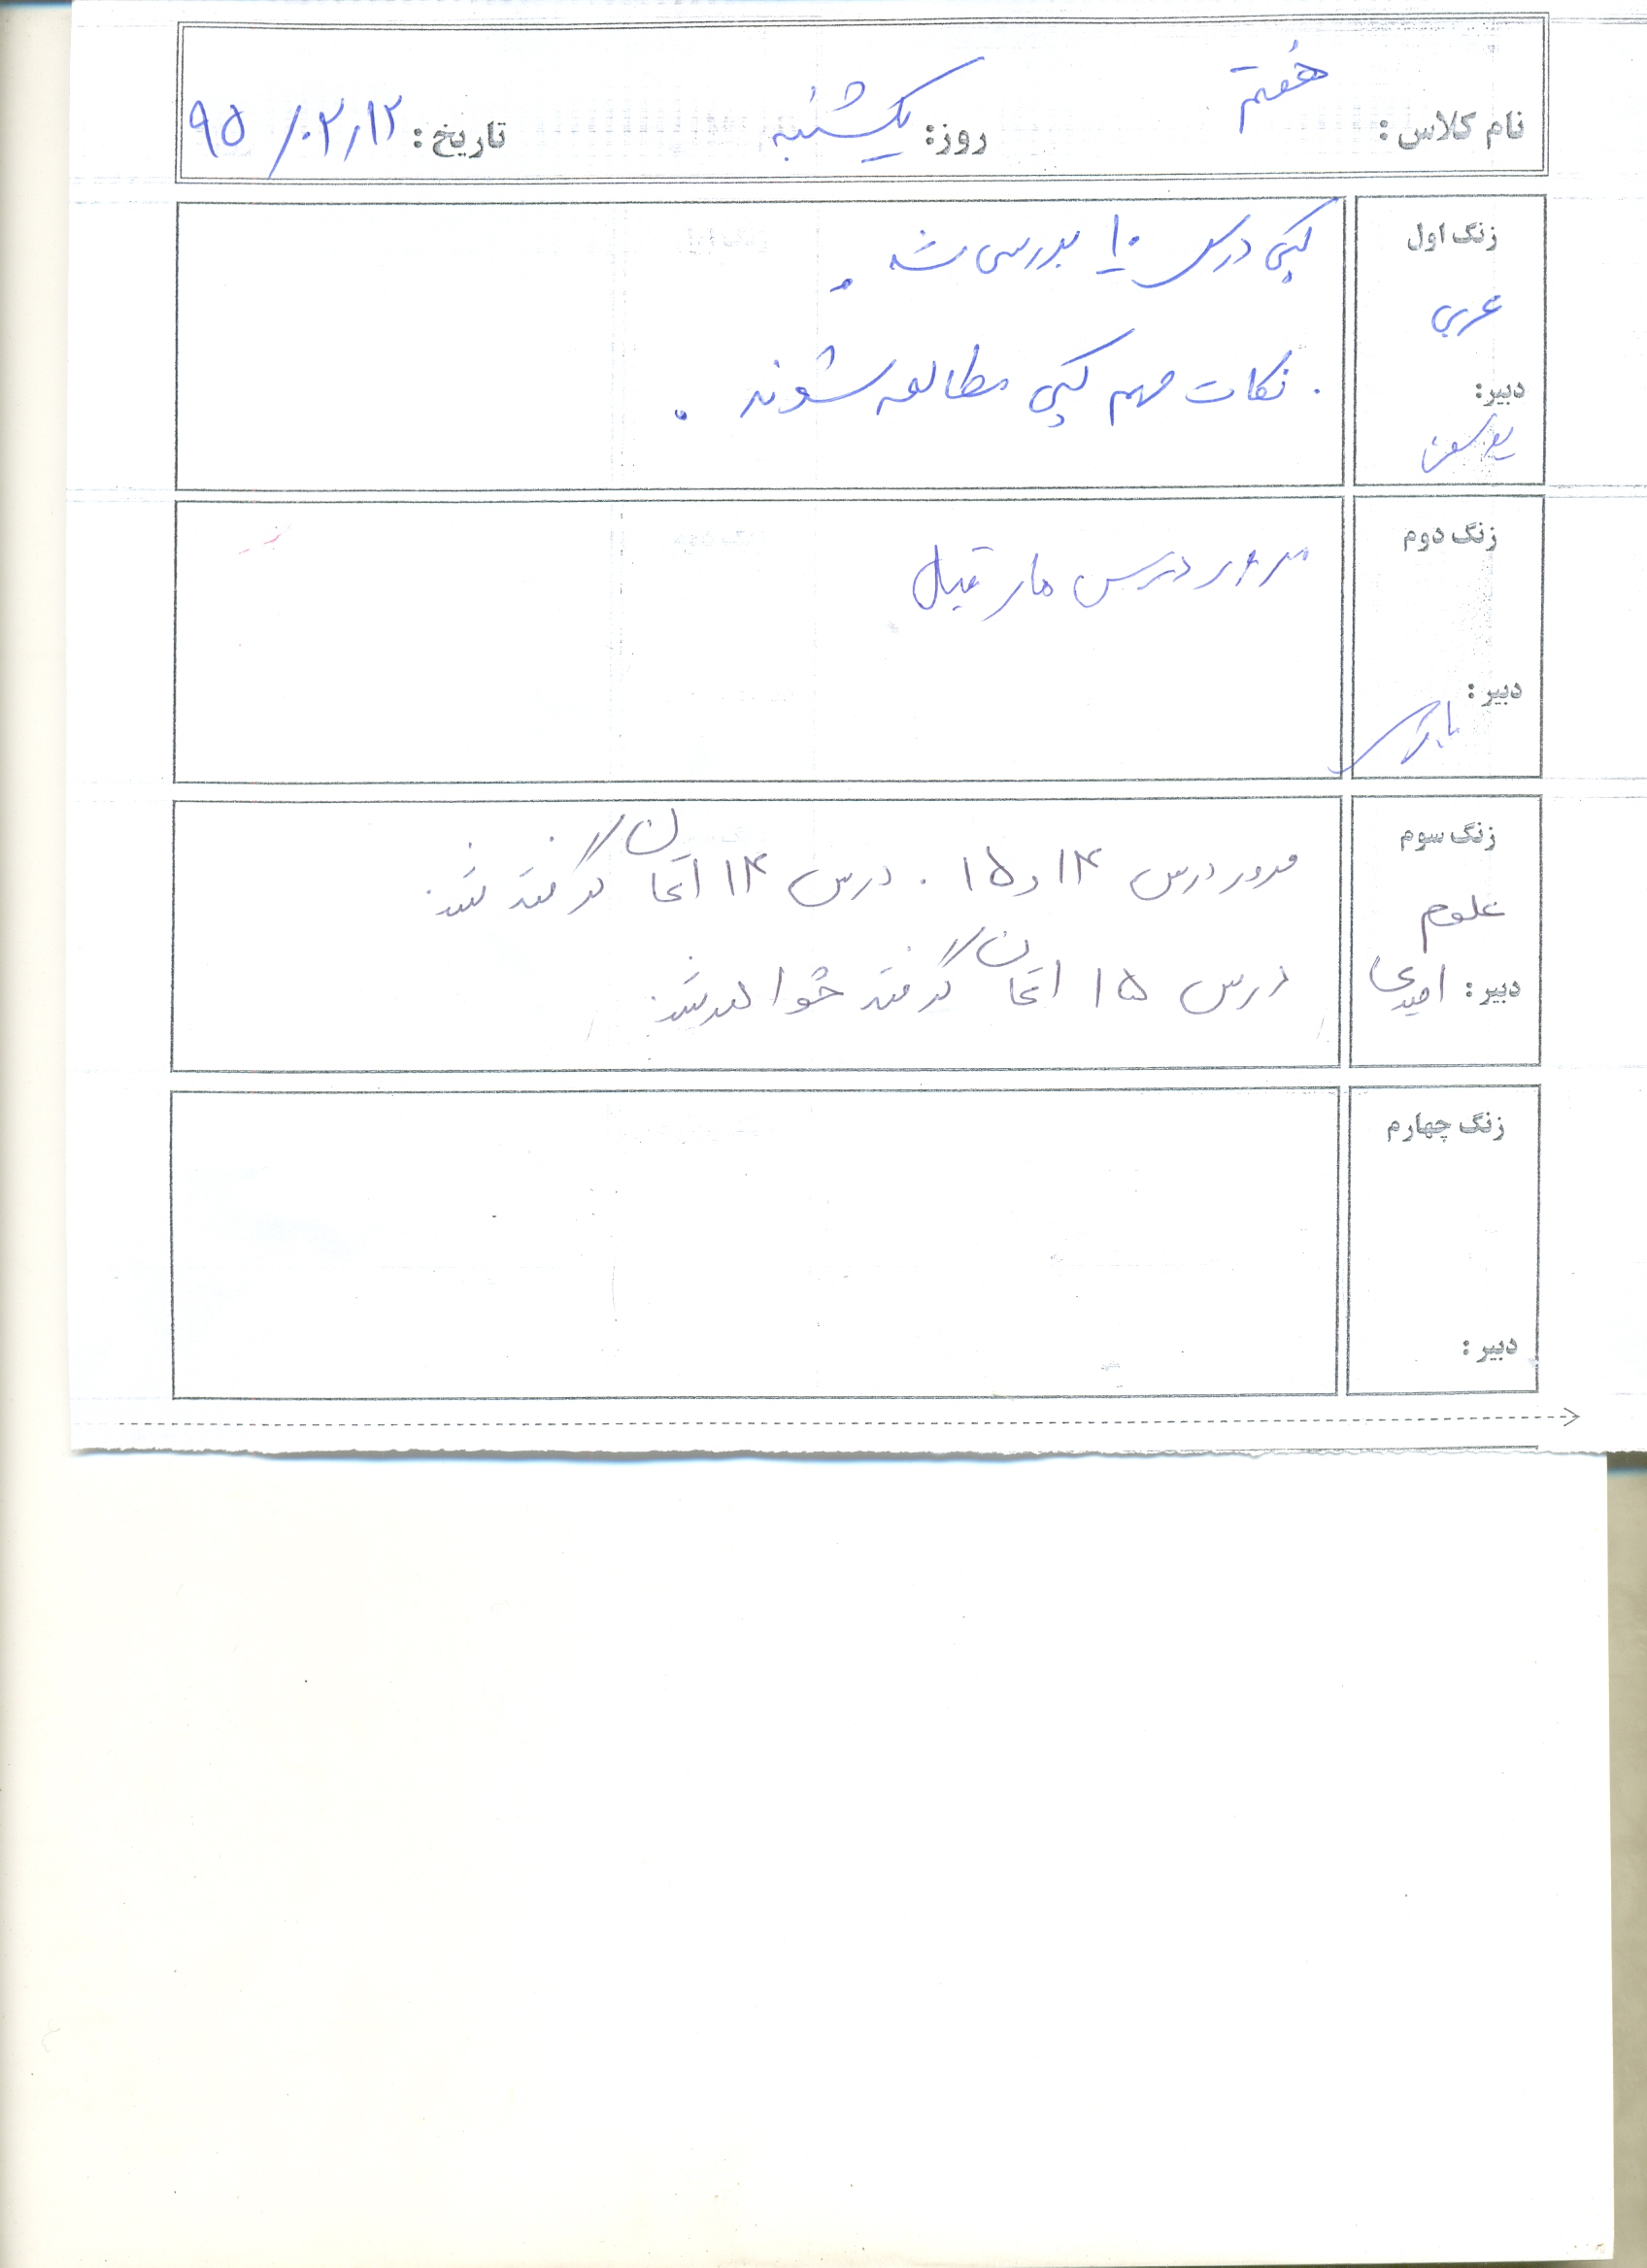 نام کلاس : هفتم روز: یکشنبه تاریخ : ۹۵/۰۲/۱۲
زنگ اول
کپی درس ۱۰ بررسی شد .
عربی
. نکات مهم کپی مطالعه شوند .
دبیر:
زنگ دوم
مرور درس های قبل
دبیر :
زنگ سوم
مرور درس ۱۴ و ۱۵ . درس ۱۴ امتحان گرفته شد.
علوم
درس ۱۵ امتحان گرفته خواهد شد.
دبیر : امیدی
زنگ چهارم
دبیر :